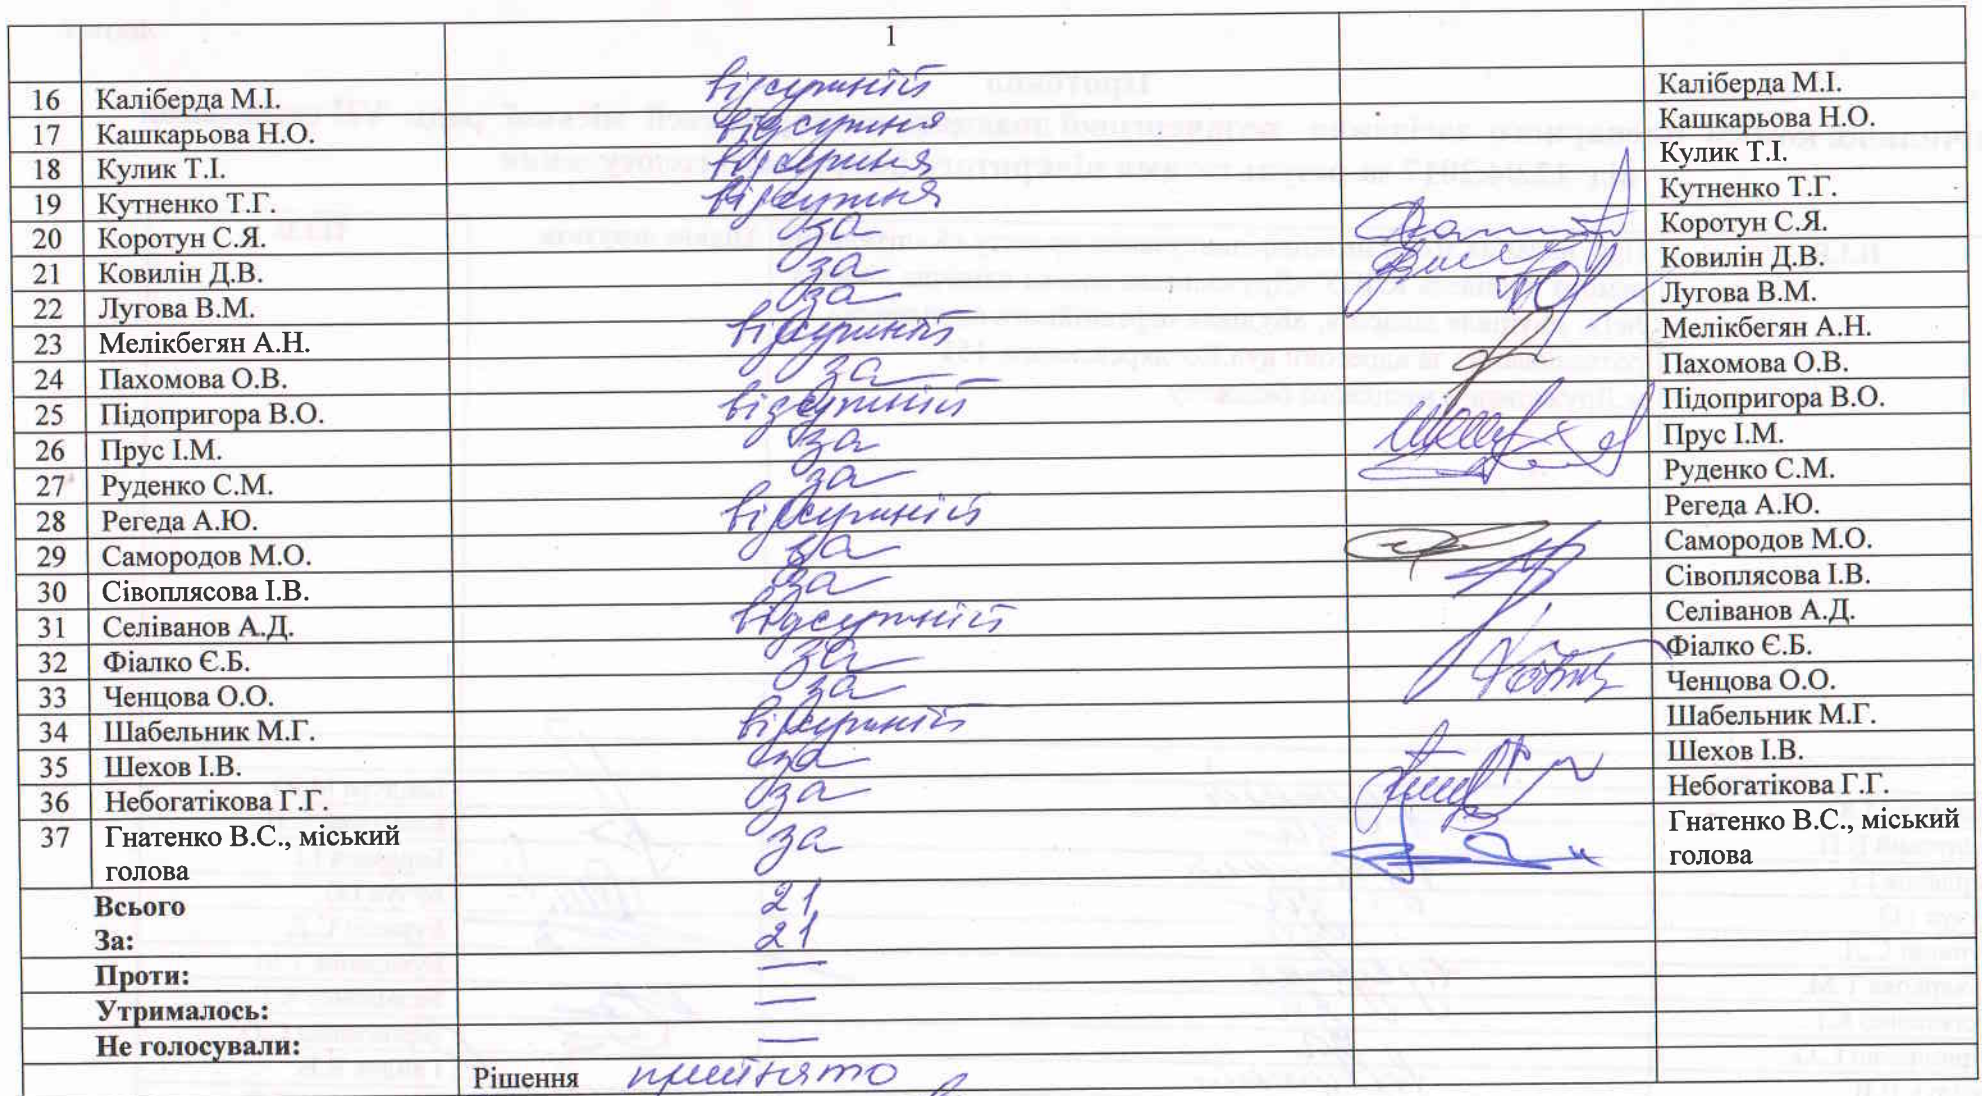 1
16 Каліберда М.І. відсутній Каліберда М.І.
17 Кашкарьова Н.О. відсутня Кашкарьова Н.О.
18 Кулик Т.І. відсутня Кулик Т.І.
19 Кутненко Т.Г. відсутня Кутненко Т.Г.
20 Коротун С.Я. за Коротун С.Я.
21 Ковилін Д.В. за Ковилін Д.В.
22 Лугова В.М. за Лугова В.М.
23 Мелікбегян А.Н. відсутній Мелікбегян А.Н.
24 Пахомова О.В. за Пахомова О.В.
25 Підопригора В.О. відсутній Підопригора В.О.
26 Прус І.М. за Прус І.М.
27 Руденко С.М. за Руденко С.М.
28 Регеда А.Ю. відсутній Регеда А.Ю.
29 Самородов М.О. за Самородов М.О.
30 Сівоплясова І.В. за Сівоплясова І.В.
31 Селіванов А.Д. відсутній Селіванов А.Д.
32 Фіалко Є.Б. за Фіалко Є.Б.
33 Ченцова О.О. за Ченцова О.О.
34 Шабельник М.Г. відсутній Шабельник М.Г.
35 Шехов І.В. за Шехов І.В.
36 Небогатікова Г.Г. за Небогатікова Г.Г.
37 Гнатенко В.С., міський за Гнатенко В.С., міський
голова голова
Всього 21
За: 21
Проти: —
Утрималось: —
Не голосували: —
Рішення прийнято